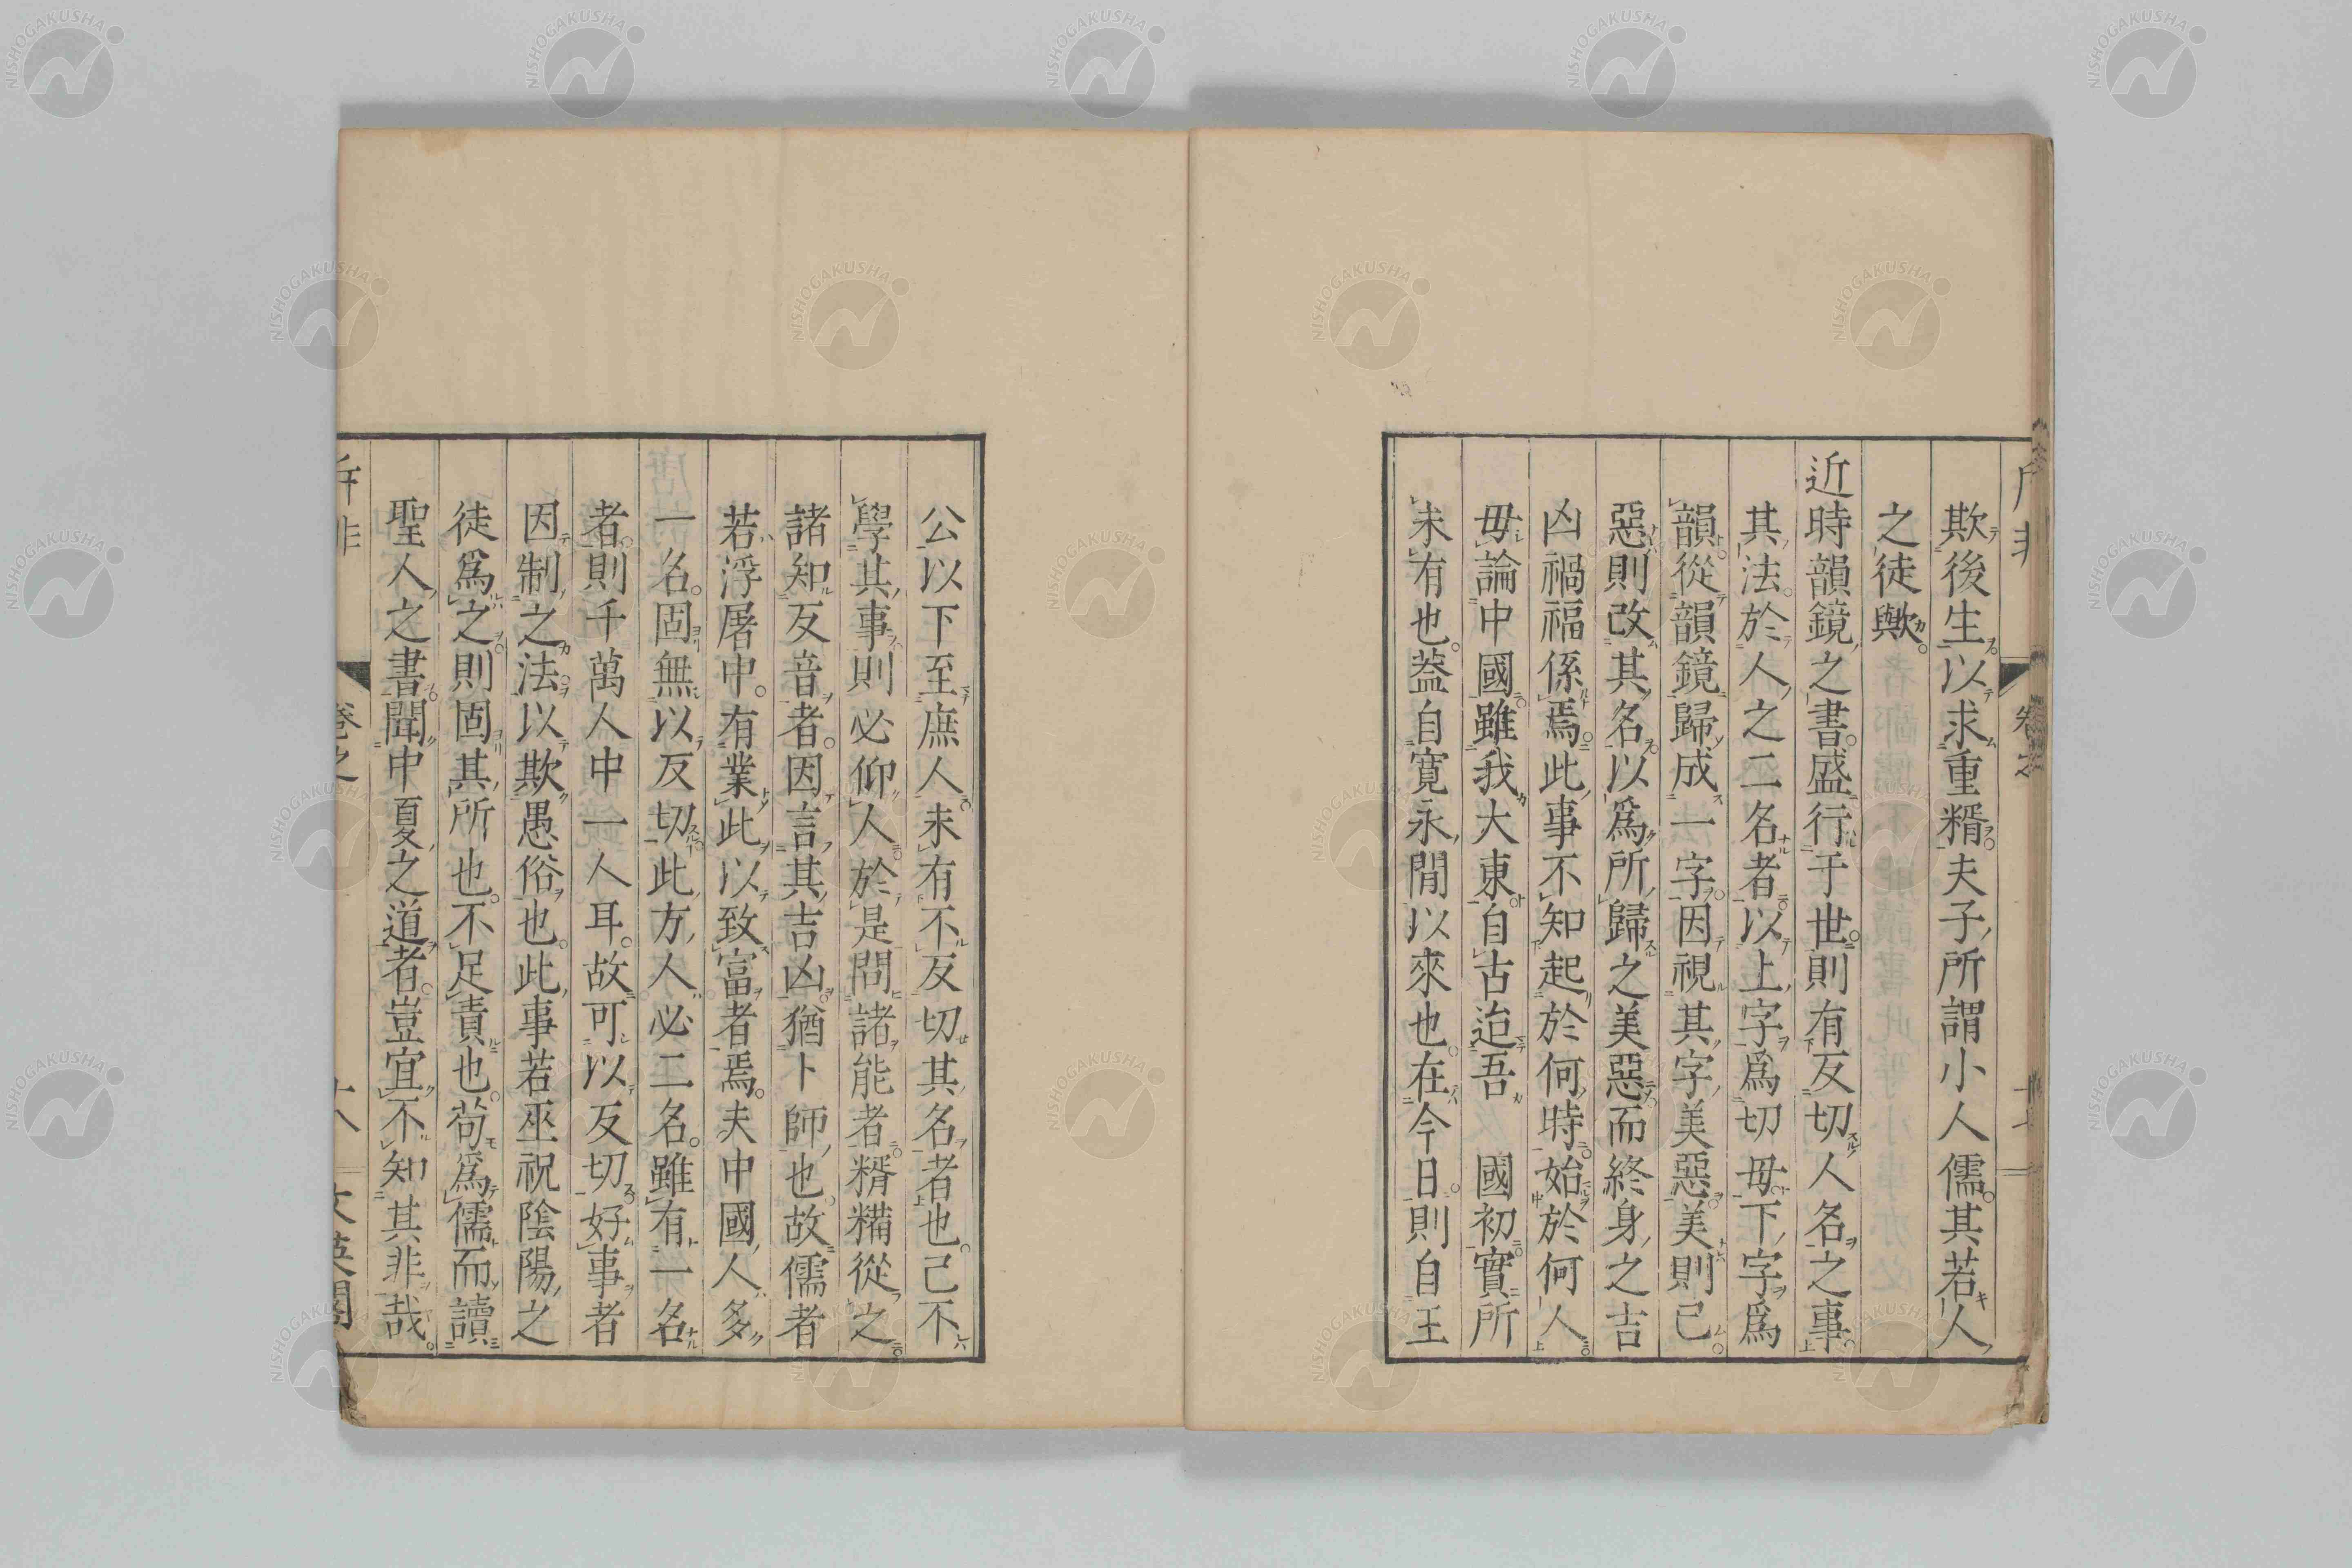 欺後生以求重糈夫子所謂小人儒其若人
之徒歟
近時韻鏡之書盛行于世則有反切人名之事
其法於人之二名者以上字爲切毋下字爲
韻從韻鏡歸成一字因視其字美惡美則已
惡則改其名以爲所歸之美惡而終身之吉
凶禍福係焉此事不知起於何時始於何人
毋論中國雖我大東自古迨吾 國初實所
未有也蓋自寛永間以來也在今日則自王
公以下至庶人未有不反切其名者也己不
學其事則必仰人於是問諸能者糈糒從之
諸知反音者因言其吉凶猶卜師也故儒者
若浮屠中有業此以致富者焉夫中國人多
一名固無以反切此方人必二名雖有一名
者則千萬人中一人耳故可以反切好事者
因制之法以欺愚俗也此事若巫祝陰陽之
徒爲之則固其所也不足責也苟爲儒而讀
聖人之書聞中夏之道者豈宜不知其非哉
NISHOGAKUSHA